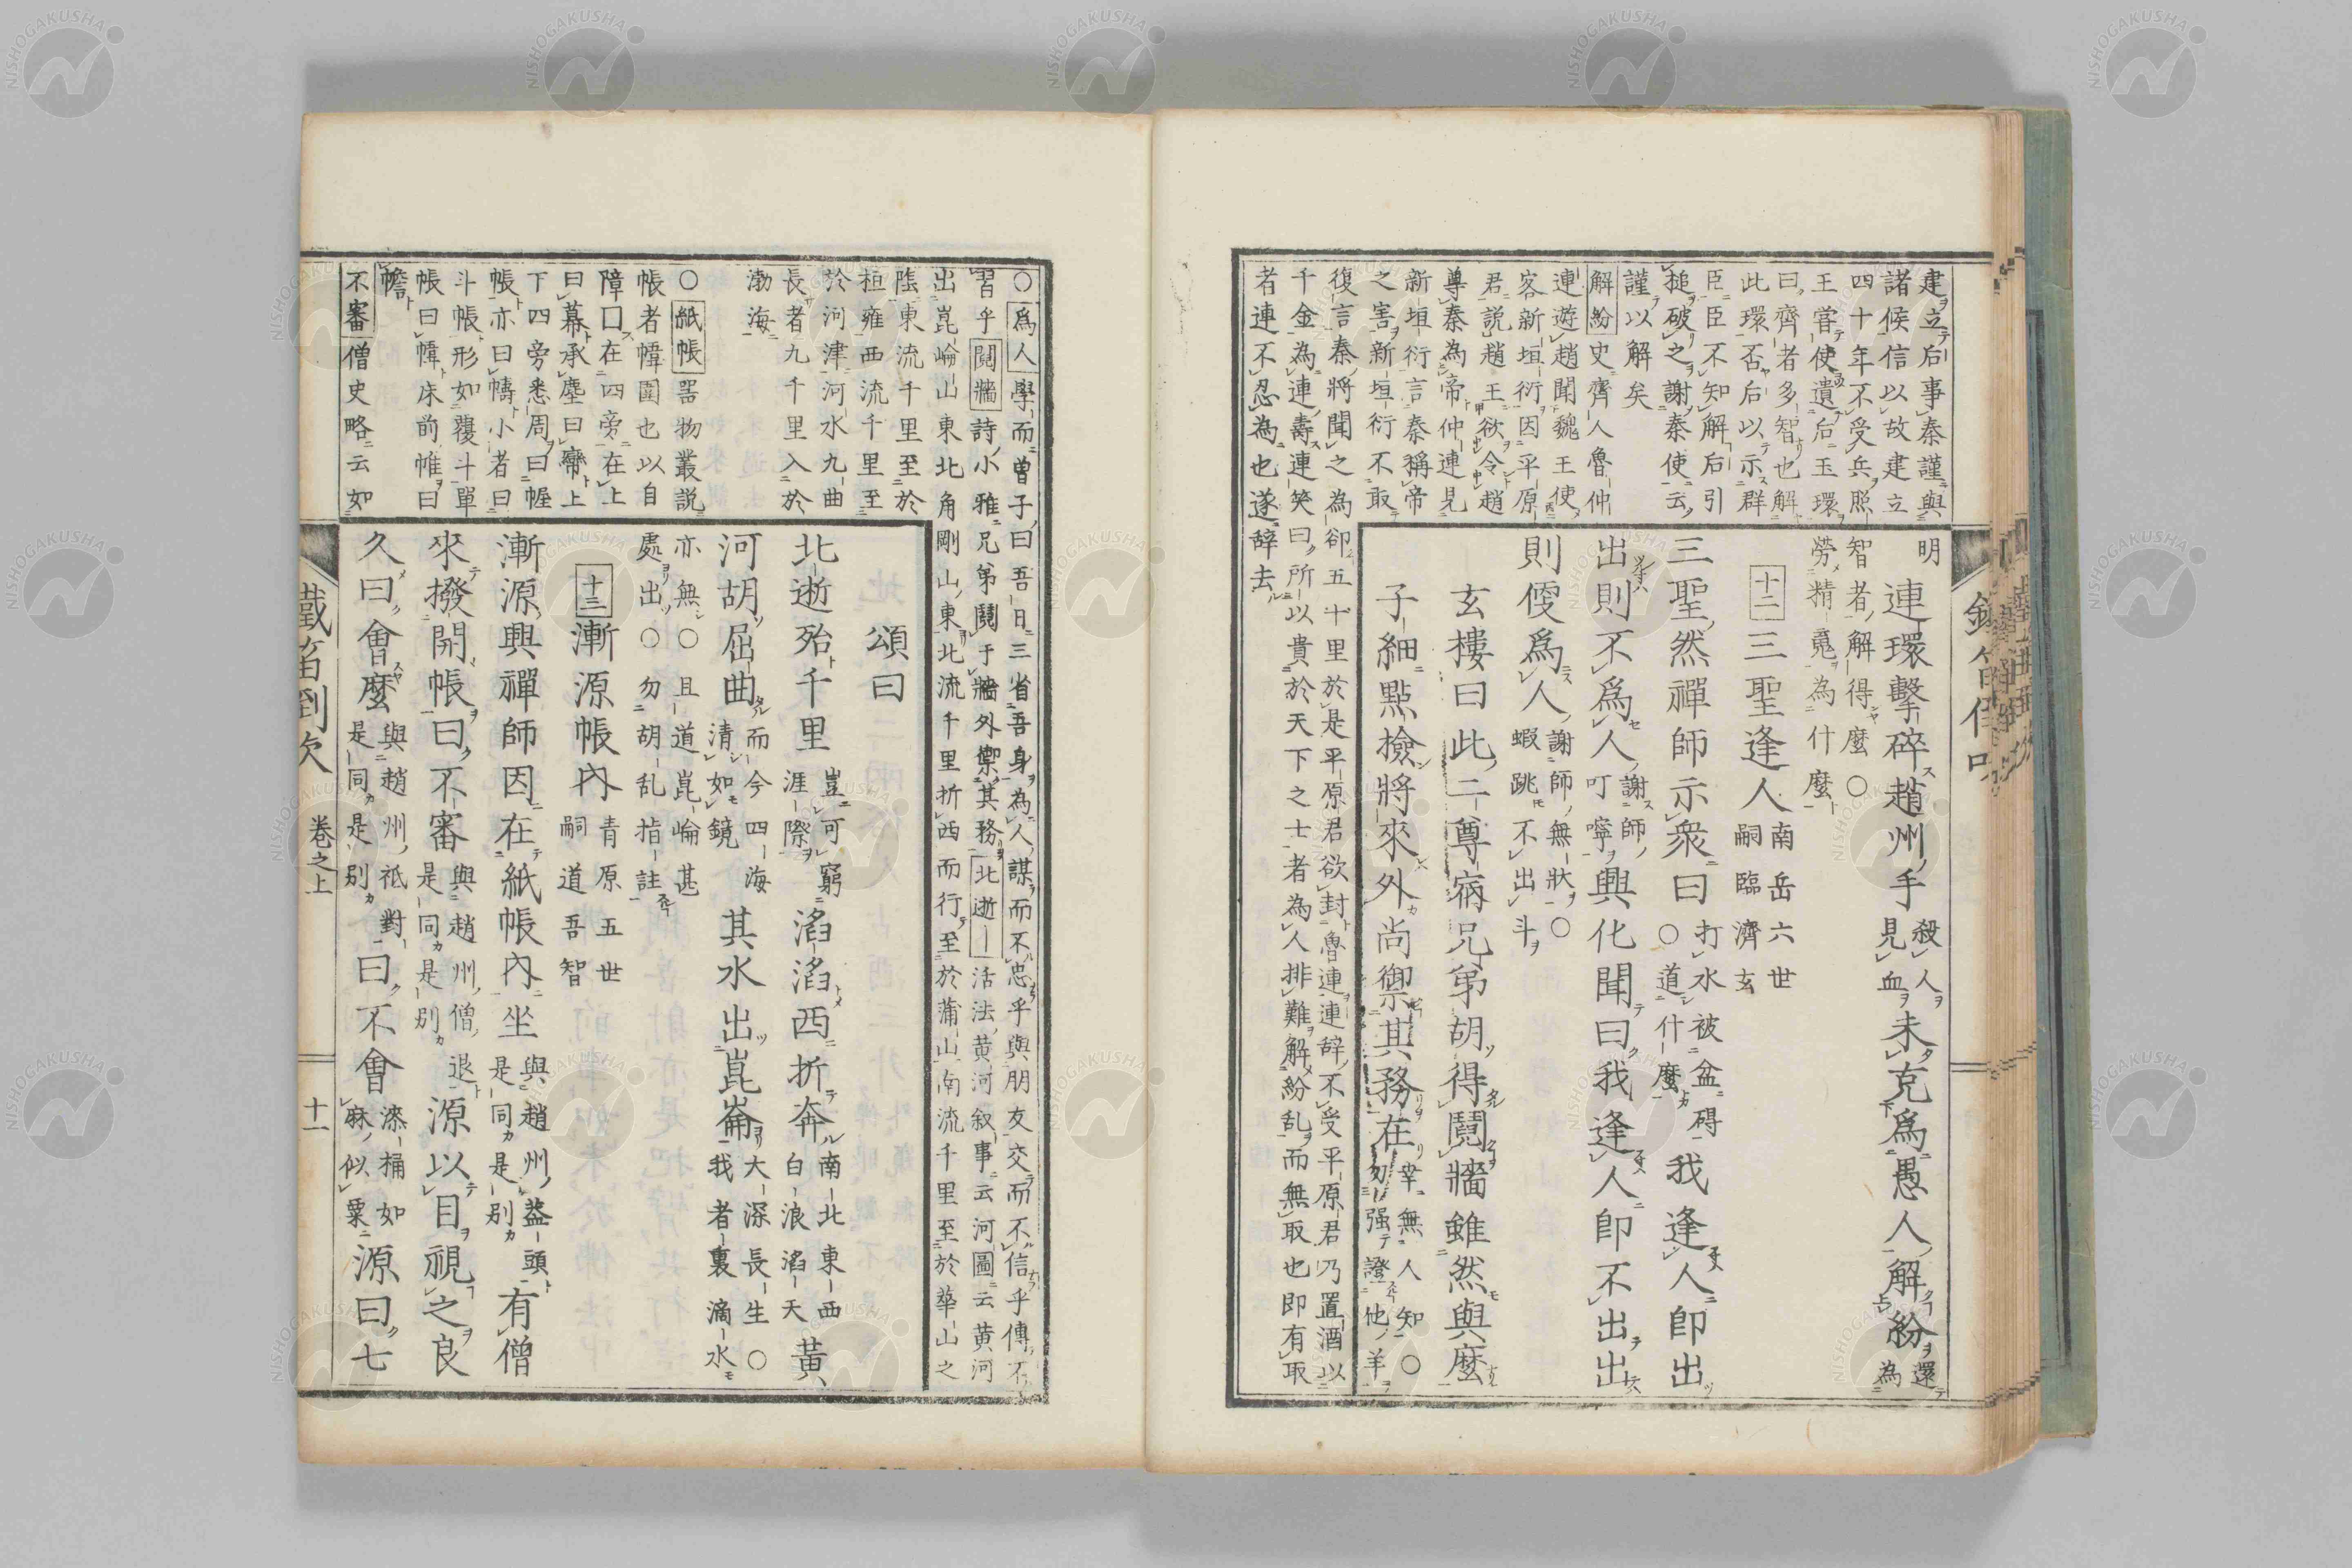 建立后事秦謹與
諸候信以故建立
四十年不受兵照
王嘗使遺后玉環
曰齊者多智也解
此環否后以示群
臣臣不知解后引
搥破之謝秦使云
謹以解矣
解紛史齊人魯仲
連遊趙聞魏王使
客新垣衍因平原
君説趙王欲令趙
尊秦為帝仲連見
新垣衍言秦稱帝
之害新垣衍不敢
復言秦將聞之為卻五十里於是平原君欲封魯連連辞不受平原君乃置酒以
千金為連壽連笑曰所以貴於天下之士者為人排難解紛乱而無取也即有取
者連不忍為也遂辞去
明
連環擊碎趙州手殺人見血未克爲愚人解紛還為
智者解得麼○
勞精䰟為什麼
十二三聖逢人南岳六世嗣臨濟玄
三聖然禪師示衆曰打水被盆碍○道什麼我逢人卽出
出則不爲人謝師叮嚀興化聞曰我逢人卽不出出
則便爲人謝師無狀○蝦跳不出斗
玄樓曰此二尊宿兄弟胡得鬩牆雖然與麼
子細點撿將來外尚禦其務在幸無人知○勿强證他羊
○爲人學而曽子曰吾日三省吾身為人謀而不忠乎與朋友交而不信乎傳不
習乎鬩牆詩小雅兄弟鬩于牆外禦其務北逝活法黄河叙事云河圖云黄河
出崑崘山東北角剛山東北流千里折西而行至於蒲山南流千里至於華山之
陰東流千里至於
桓雍西流千里至
於河津河水九曲
長者九千里入於
渤海
○紙帳器物叢説
帳者幃圍也以自
障囗在四旁在上
曰幕承塵曰帟上
下四旁悉周曰幄
帳亦曰幬小者曰
斗帳形如覆斗單
帳曰幃床前帷曰
幨
不審僧史略云如
頌曰
北逝殆千里豈可窮涯際滔滔西折奔南北東西白浪滔天黃
河胡屈曲而今四海清如鏡其水出崑崙大深長生○我者裏滴水
亦無○且道崑崘甚
處出○勿胡乱指註
十三漸源帳內青原五世嗣道吾智
漸源興禪師因在紙帳內坐與趙州葢頭是同是別有僧
來撥開帳曰不審與趙州僧退是同是別源以目視之良
久曰會麼與趙州祇對是同是別曰不會漆桶如麻似粟源曰七
鐵笛倒吹 卷之上 十一